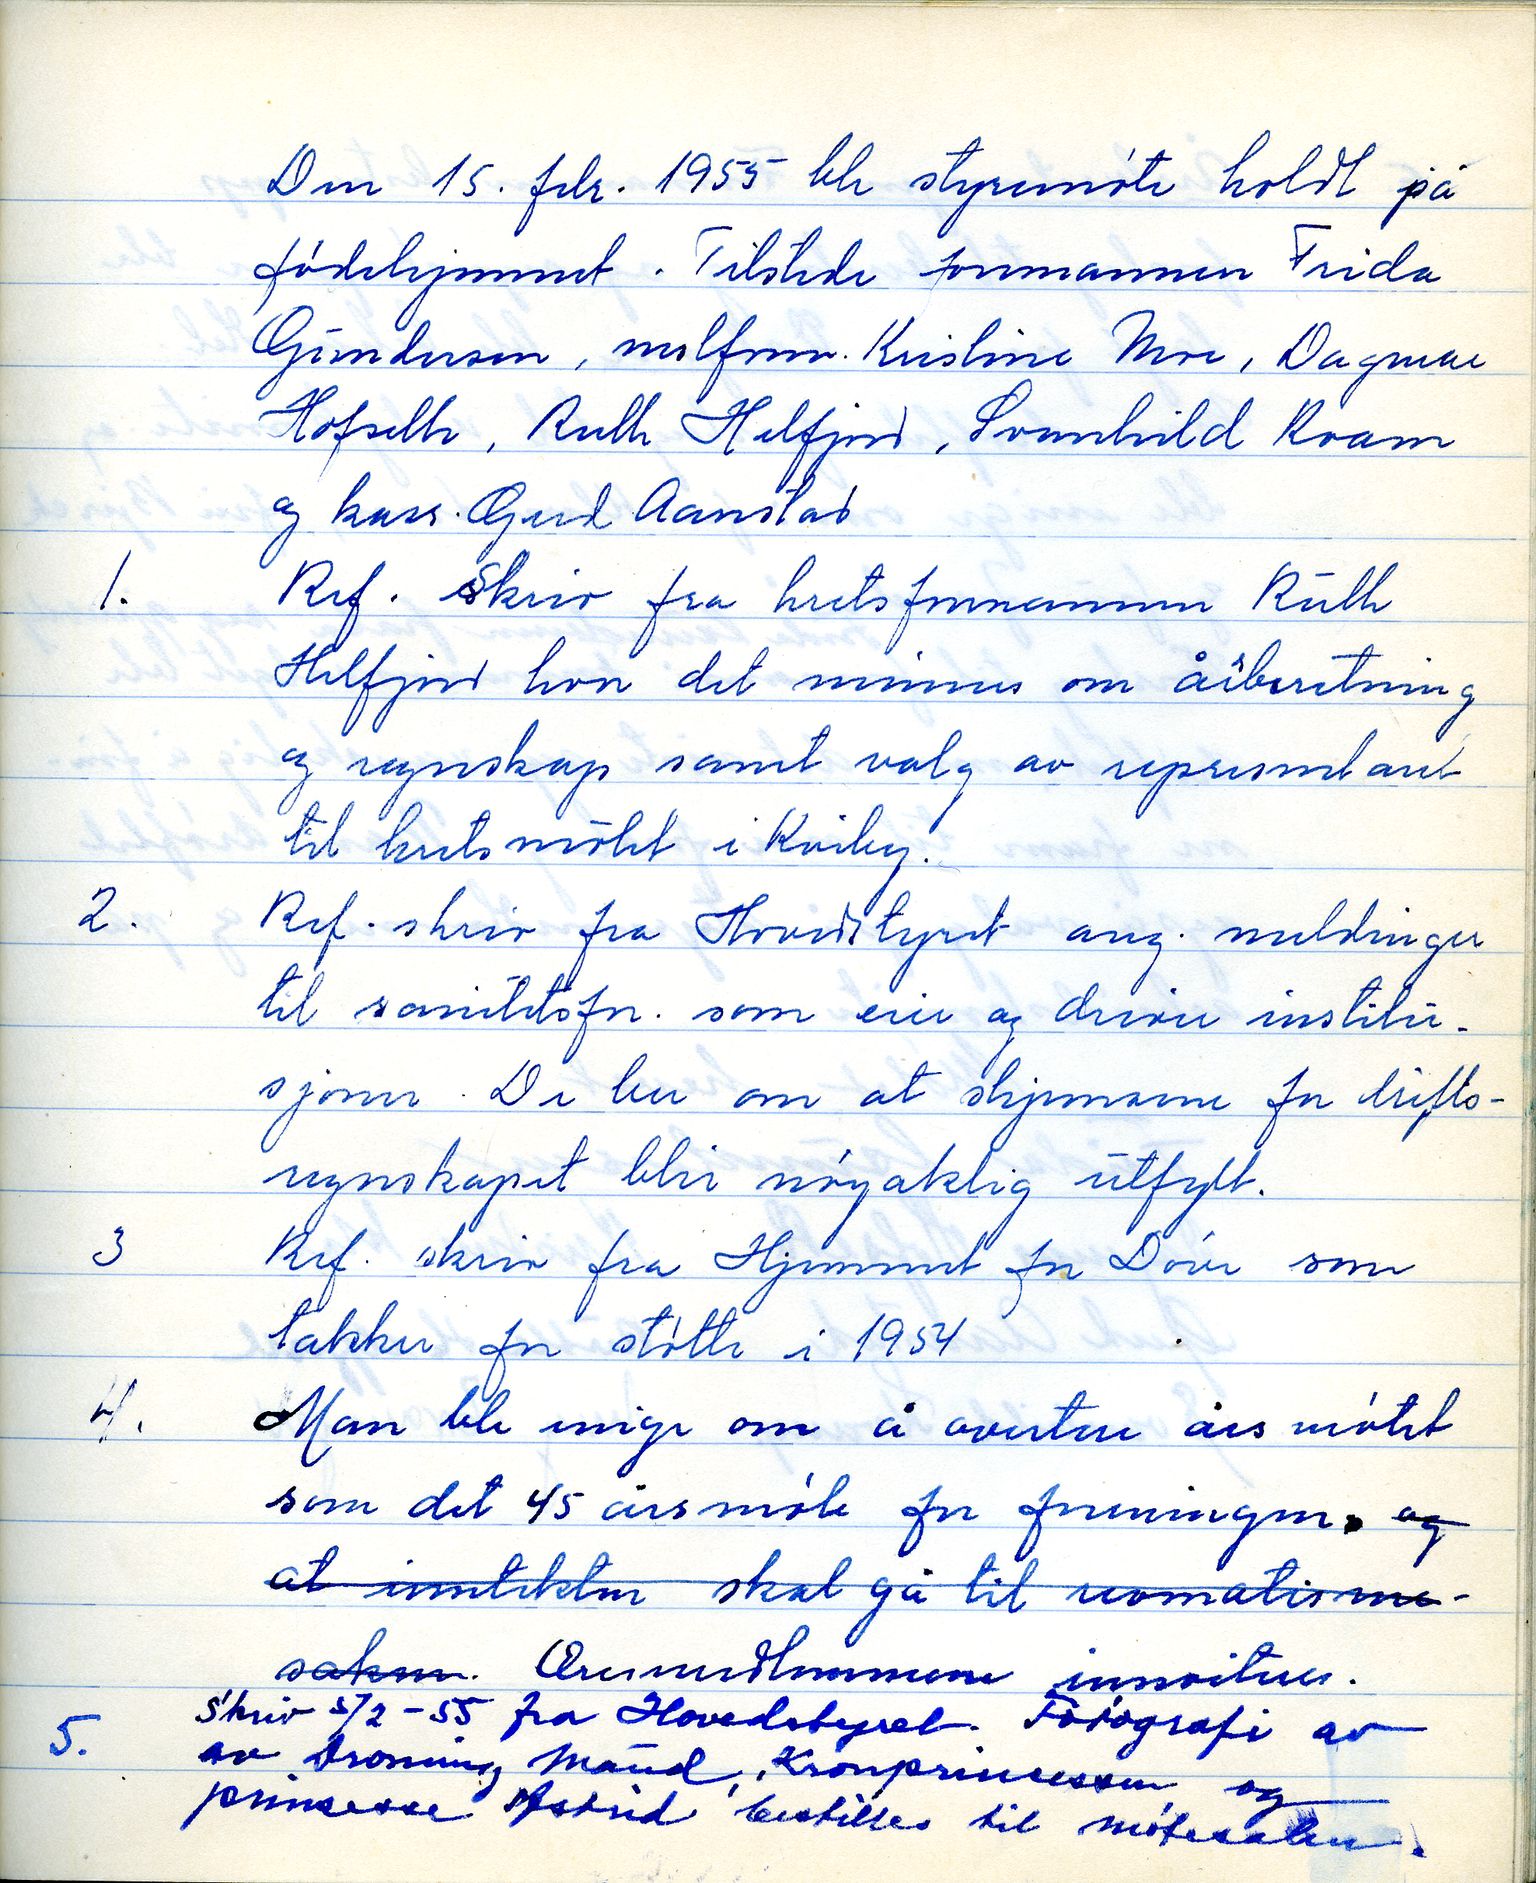 Den 15. febr. 1955 ble styremöte holdt på
födehjemmet. Tilstede formannen Frida
Gundersen, nestform. Kristine Moe, Dagmar
Hofseth, Ruth Helfjord, Svanhild Kvam
og kass. Gerd Aanstad
1. Ref. Skriv fra kretsformannen Ruth
Helfjord hvor det minnes om årsberetning
og regnskap samt valg av representant
til kretsmötet i Kviby.
2. Ref. skriv fra Hovedstyret ang. meldinger
til sanitetsfor. som eier og driver institu-
sjoner. De ber om at skjemaene for drifts-
regnskapet blir nöyaktig utfylt.
3 Ref. skriv fra Hjemmet for Döve som
takker for stötte i 1954
4. Man ble enige om å avertere årsmötet
som det 45 årsmöte for foreningen. og
at inntekten skal gå til revmatisme-
saken. Æresmedlemmene innviteres.
5. Skriv 5/2-55 fra Hovedstyret. Fotografi av
av Droning Maud, Kronprinsessen og
prinsesse Astrid bestilles til mötesalen.